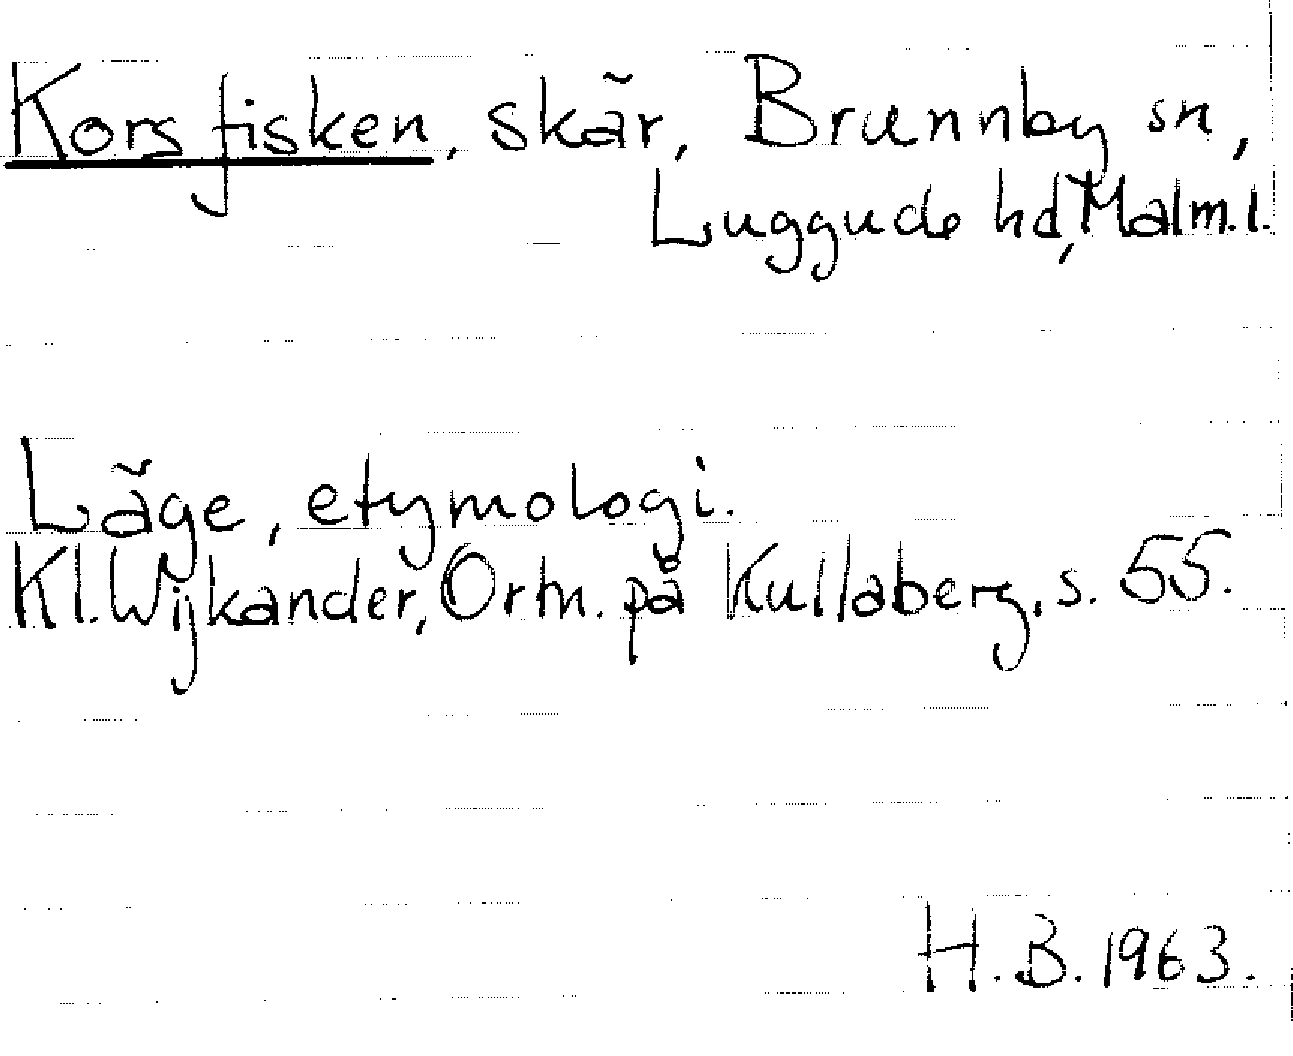 Korsfisken, skär, Brunnby sn,
Luggude hd, Malm.l.
Läge, etymologi.
Kl. Wijkander, Ortn. på Kullaberg, s. 55.
H.B. 1963.